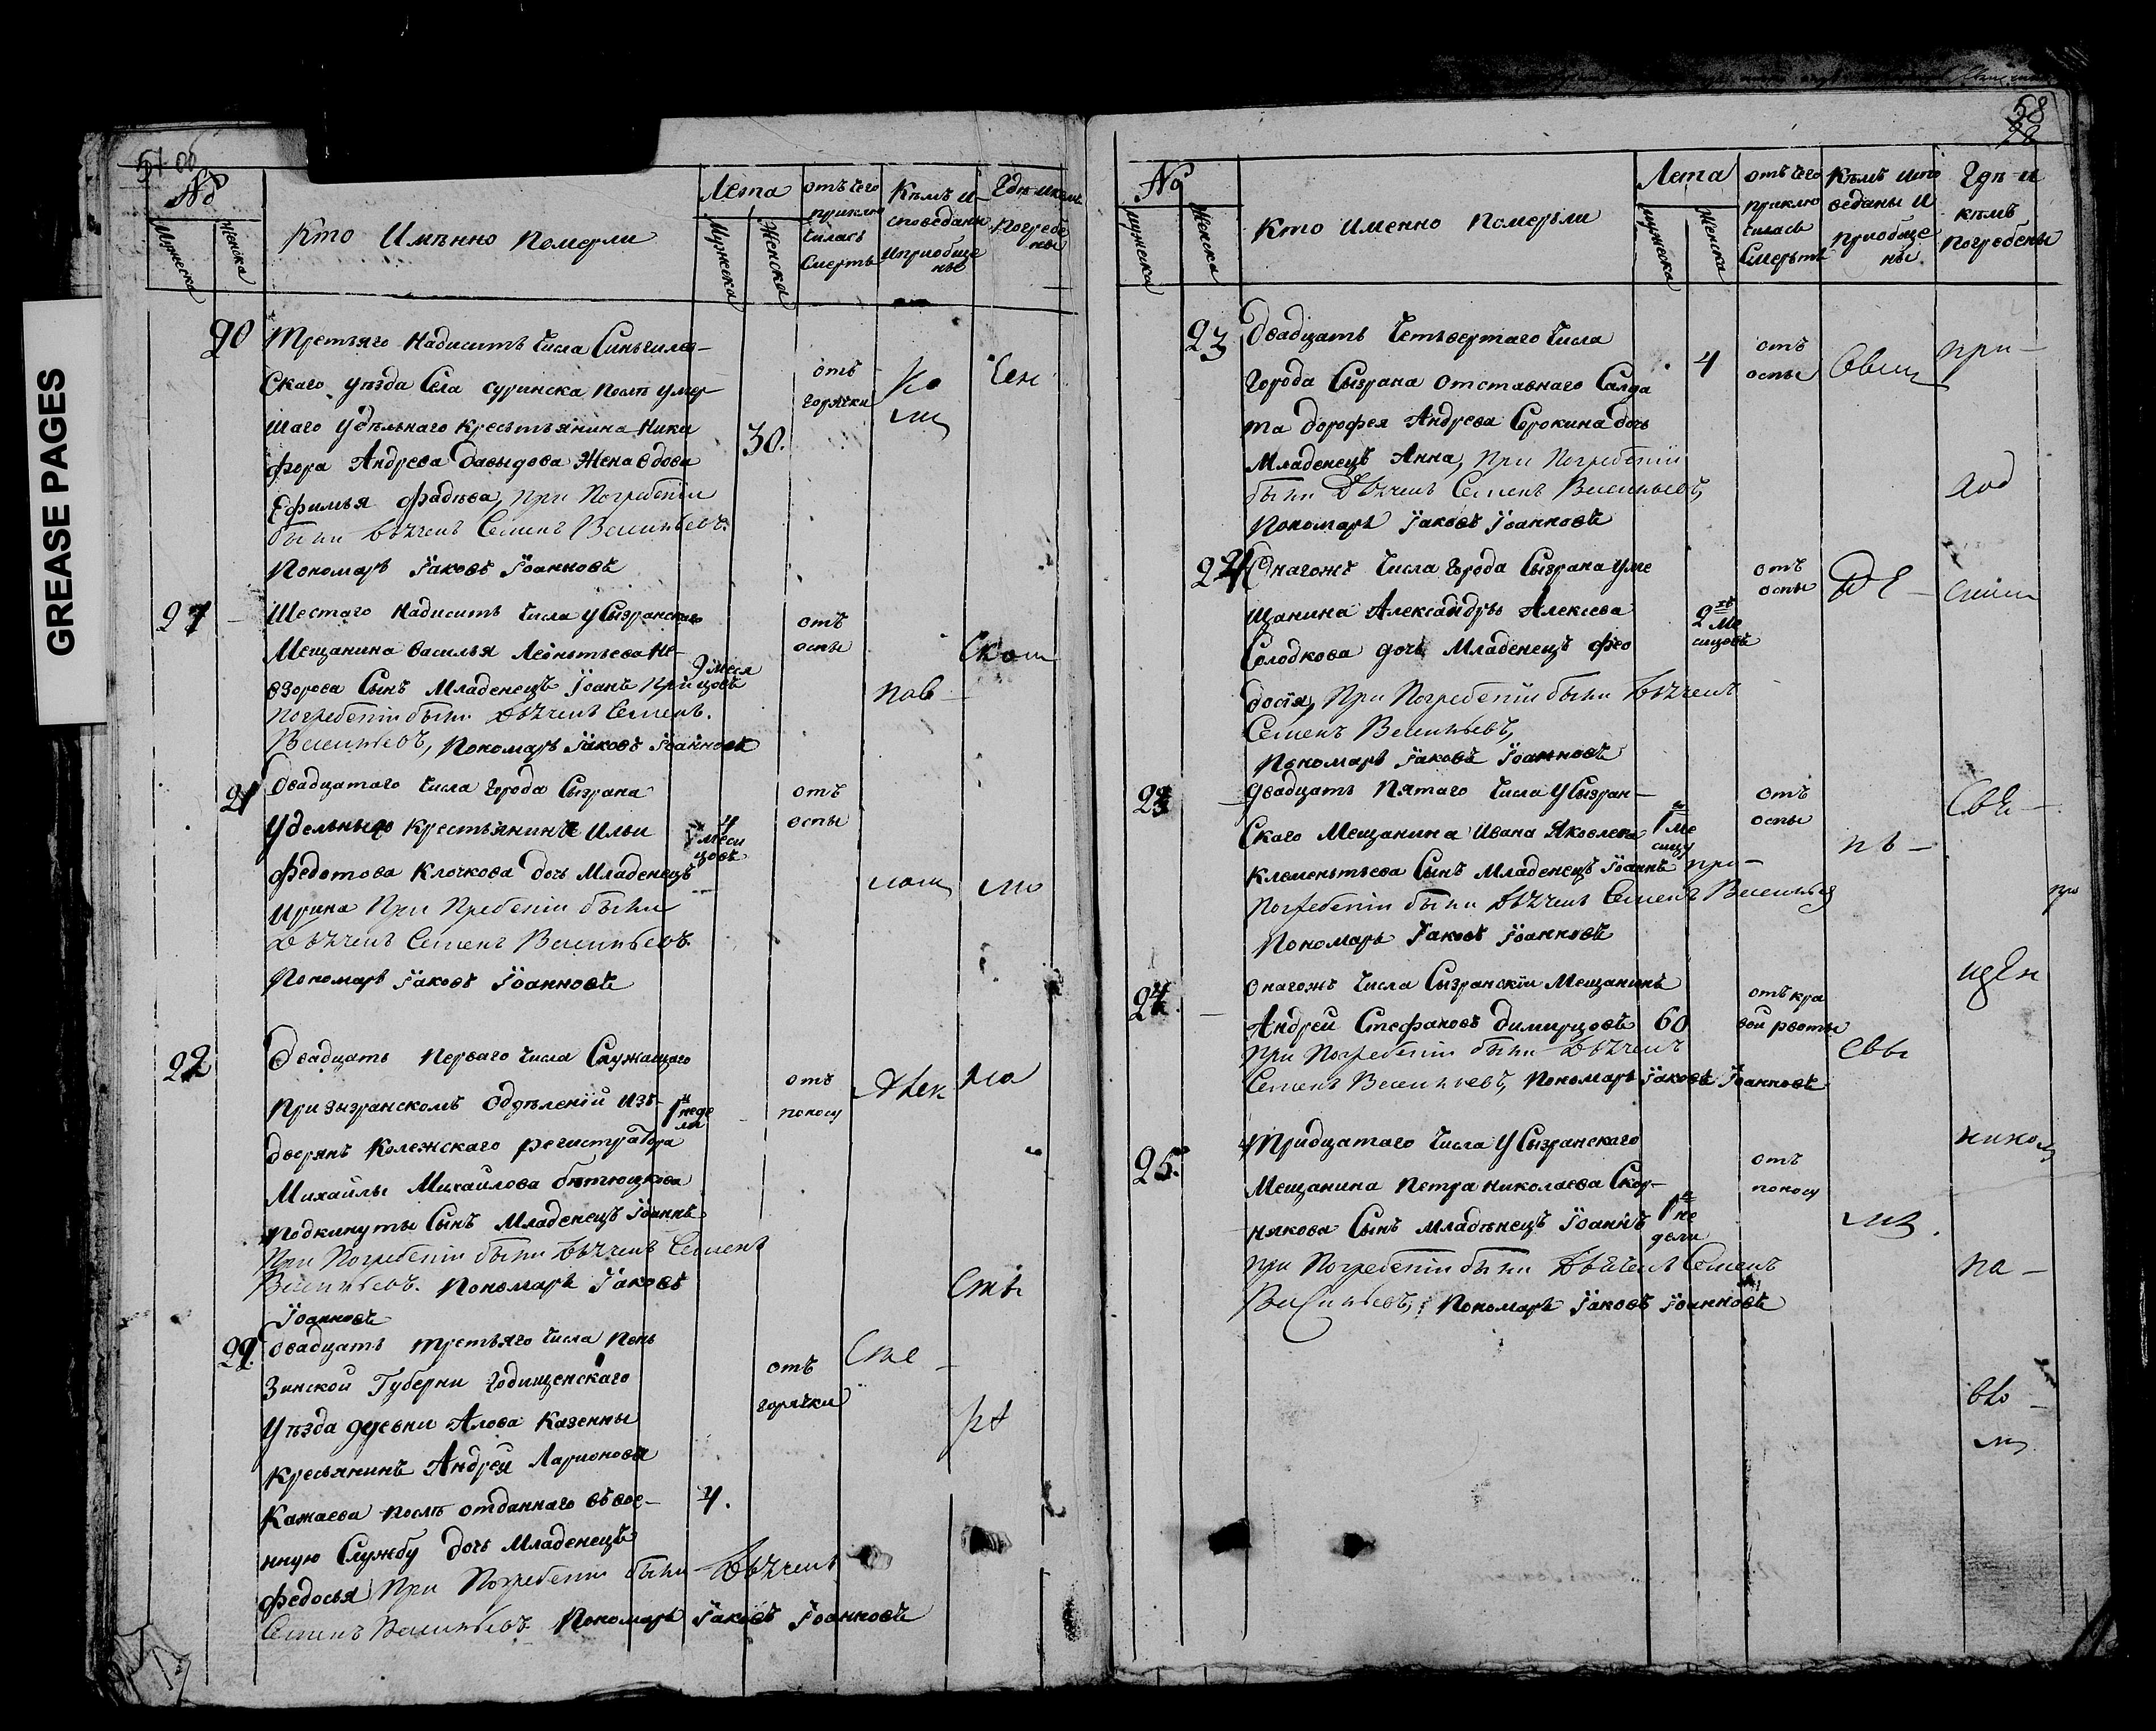 GREASE PAGES
№
Мужеска
Женска
Кто Имѣнно Померли
Лета
Мужеска
Женска
отъ чего
приклю
чилась
Смерть
Кѣмъ и
споведаны
и приобще
ны
Где и кемъ
Погребе
ны
20
Третьяго Надцить числа Синьгилеѣ-
Скаго уѣзда Села суринска После умер-
шаго Удѣльнаго Крестьянина Ники
фора Андреева Давыдова Жена вдова
Ефимья фадѣева, При Погребении
были Дьячекъ Семенъ Васильевъ.
Пономарь Iаковъ Iоанновъ
30.
отъ
горячки
21
Шестаго Надцить числа У Сызранскаго
Мещанина Василья Леоньтьева Не-
взорова Сынъ Младенецъ Iоанъ При
Погребении были Дьячекъ Семенъ.
Васильевъ, Пономарь Iаковъ Iоанновъ
9 меся
цовъ
отъ
оспы
21
Двадцатаго числа города Сызрана
Удельныю Крестьянинъ Ильи
федотова Клочкова Дочь Младенецъ
Ирина При Пребении были
Дьячекъ Семенъ Васильевъ.
Пономарь Iаковъ Iоанновъ
4
меси
цовъ
отъ
оспы
22
Двадцать перваго числа Служащаго
при зызранскомъ Отделений Изъ-
дворянъ Колежскаго регистратора
Михайлы Михайлова
Подкинуты Сынъ Младенецъ Iоаннъ
При Погребении были Дьячекъ Семенъ
Васильевъ. Пономарь Iаковъ
Iоанновъ
1 неде
ли
отъ
поносу
22.
Двадцать третьяго числа Пень
зинской Губерни Годищенскаго
Уѣзда деревни Алова Казенны
Кресьянинъ Андрея Ларионова
Кажаева После отданнаго въ вое-
нную Службу дочь Младенецъ
федосья При Погребении были Дьячекъ
Семенъ Васильевъ Пономарь Iаковъ Iоанновъ
4.
отъ
горячки
58
№
мужеска
Женска
Кто именно Померли
Лета
мужеска
Женска
отъ чего
приклю
чилась
Смерьть
Кѣмъ испо
веданы И
Приобще
ны
Гдѣ и
кѣмъ
Погребены
23
Двадцать Четвертаго числа
города Сызрана Отставнаго Салда
та дорофея Андреева Сорокина дочь
Младенецъ Анна, При Погребении
были Дьячекъ Семенъ Васильевъ,
Пономарь Iаковъ Iоанновъ
4
отъ
оспы
при-
24
Онагожъ числа города Сызрана у ме
щанина Александры Алексеева
Солодкова дочь Младенецъ Фео
досия, При Погребении были Дьячекъ
Семенъ Васильевъ,
Пономарь Iаковъ Iоанновъ
2хъ ме
сицовъ
отъ
оспы
23
Двадцать Пятаго числа У Сызран-
Скаго Мещанина Ивана Яковлева
Клеменьтьева Сынъ Младенецъ Iоаннъ при-
погребении были Дьячекъ Семенъ Васильев
Пономарь Iаковъ Iоанновъ
1 ме
сицу
отъ
оспы
24.
Онагожъ числа Сызранскии Мещанинъ
Андрей Стефановъ Димирцовъ
При Погребении были Дьячекъ
Семенъ Васильевъ, Пономарь Iаковъ Iоанновъ
60
отъ кра
вой рвоты
25.
Тридцатаго числа У Сызранскаго
Мещанина Петра Николаева Скор-
някова Сынъ младѣнецъ Iоаннъ
При Погребении были Дьячекъ Семенъ
Васильевъ, Пономарь Iаковъ Iоанновъ
1 не
дели
отъ
поносу